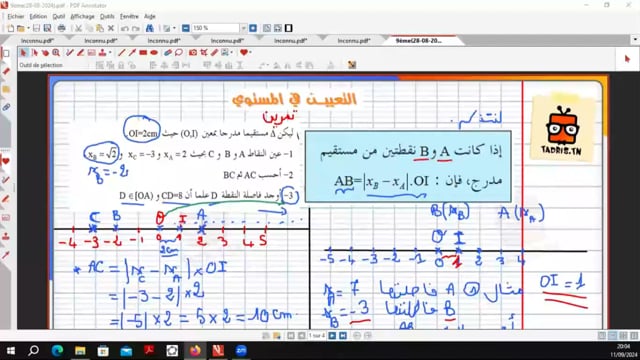 9ème(28-08-2024).pdf - PDF Annotator
Fichier Edition Affichage Insertion Document Outils Fenêtre Aide
150 %
Inconnu.pdf* Inconnu.pdf* Inconnu.pdf* Inconnu.pdf* Inconnu.pdf* 9ème(28-08-20...
Outil de sélection
التعيين في المستوي
تمرين
OI=2cm
ليكن Δ مستقيما مدرجا بمعين (O,I) حيث
1- عين النقاط A و B و C بحيث x_A = 2 و x_C = -3 و x_B = √2
x_B = -2
2- أحسب AC و BC
3- أوجد فاصلة النقطة D علما أن CD=8 و D ∈ [OA)
C B O I A
-4 -3 -2 -1 0 1 2 3 4 5
2cm
* AC = |x_C - x_A| × OI
= |-3 - 2| × 2
= |-5| × 2 = 5 × 2 = 10 cm
لنتذكر
TADRIS.TN
إذا كانت A و B نقطتين من مستقيم
مدرج، فإن : AB=|x_B − x_A|.OI
B(x_B) A(x_A)
O I
-5 -4 -3 -2 -1 0 1 2 3 4
OI = 1
مثال A فاصلتها x_A = 7
B فاصلتها x_B = -3
1 sur 4
20:04
11/09/2024